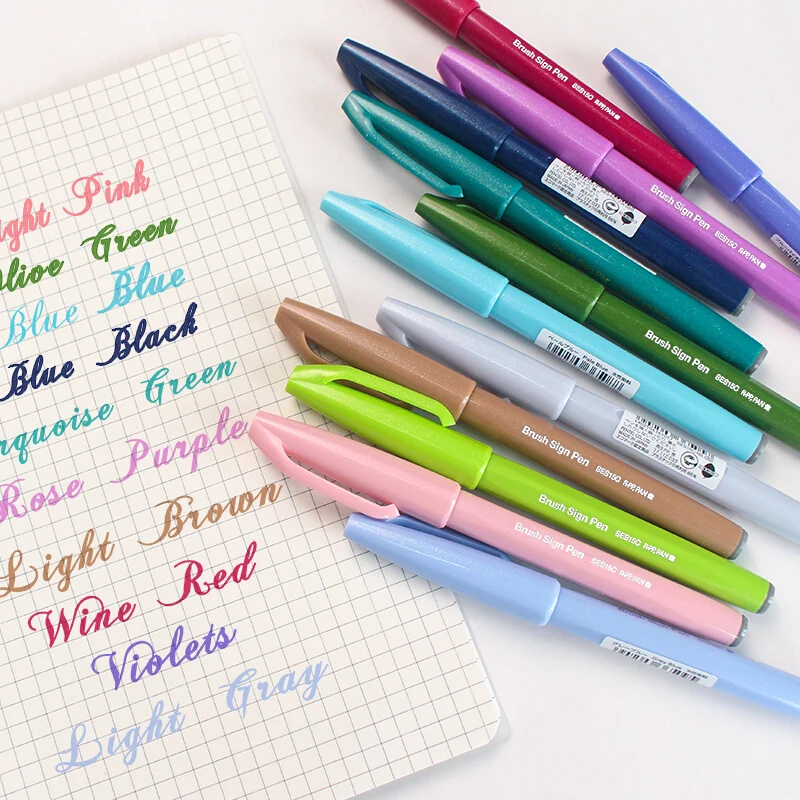 ight Pink
live Green
Blue Blue
Blue Black
rquoise Green
Rose Purple
Light Brown
Wine Red
Violets
Light Gray
Brush Sign Pen SES15C
Brush Sign Pen SES15C
Brush Sign Pen SES15C JAPAN
ペールブルー Pale Blue
Brush Sign Pen SES15C JAPAN
Brush Sign Pen SES15C JAPAN
Brush Sign Pen SES15C JAPAN
グレーブルー Grey Blue